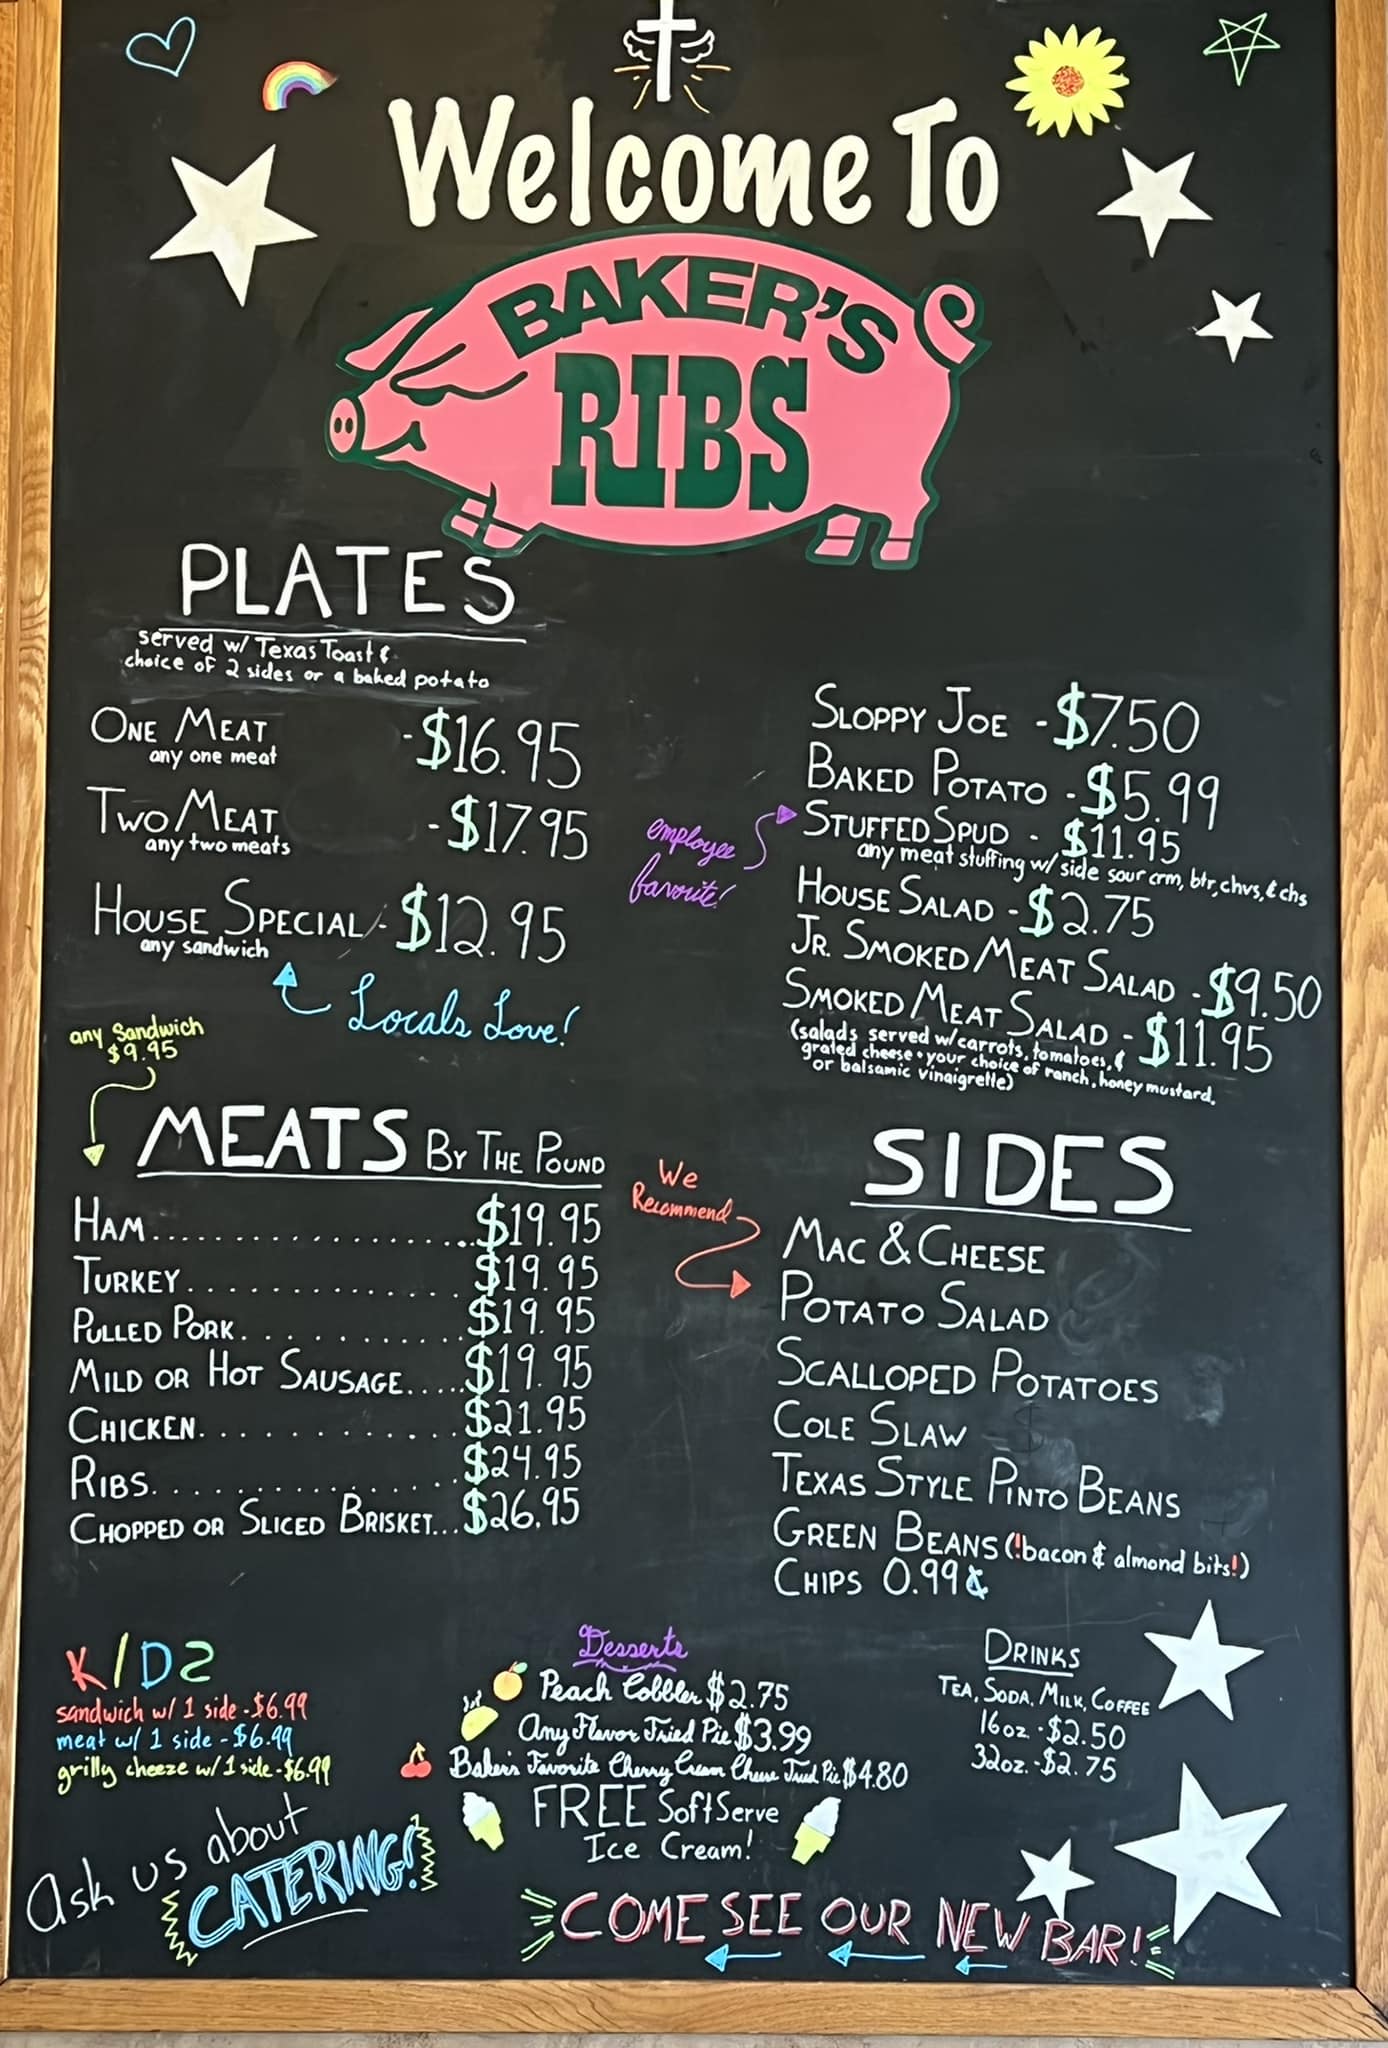 Welcome To
BAKER'S
RIBS
PLATES
served w/ Texas Toast &
choice of 2 sides or a baked potato
ONE MEAT - $16.95
any one meat
TWO MEAT - $17.95
any two meats
HOUSE SPECIAL - $12.95
any sandwich
Locals Love!
employee
favorite!
SLOPPY JOE - $7.50
BAKED POTATO - $5.99
STUFFED SPUD - $11.95
any meat stuffing w/ side sour crm, btr, chvs, & chs
HOUSE SALAD - $2.75
JR. SMOKED MEAT SALAD - $9.50
SMOKED MEAT SALAD - $11.95
(salads served w/ carrots, tomatoes, &
grated cheese • your choice of ranch, honey mustard,
or balsamic vinaigrette)
any Sandwich
$9.95
MEATS BY THE POUND
HAM.....................$19.95
TURKEY...............$19.95
PULLED PORK............$19.95
MILD OR HOT SAUSAGE.....$19.95
CHICKEN.............$21.95
RIBS................$24.95
CHOPPED OR SLICED BRISKET...$26.95
We
Recommend
SIDES
MAC & CHEESE
POTATO SALAD
SCALLOPED POTATOES
COLE SLAW
TEXAS STYLE PINTO BEANS
GREEN BEANS (!bacon & almond bits!)
CHIPS 0.99¢
KIDS
sandwich w/ 1 side - $6.99
meat w/ 1 side - $6.99
grilly cheeze w/ 1 side - $6.99
Ask us about
CATERING!
Desserts
Peach Cobbler $2.75
Any Flavor Fried Pie $3.99
Baker's Favorite Cherry Cream Cheese Fried Pie $4.80
FREE Soft Serve
Ice Cream!
DRINKS
TEA, SODA, MILK, COFFEE
16oz - $2.50
32oz. - $2.75
COME SEE OUR NEW BAR!